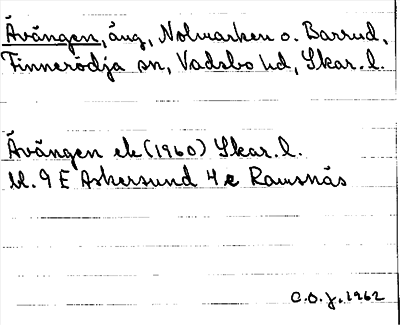 Åvängen, äng, Nolmarken o. Barrud,
Finnerödja sn, Vadsbo hd, Skar. l.
Åvängen ek (1960) Skar. l.
bl. 9 E Askersund 4 e Ramsnäs
C.O.J. 1962